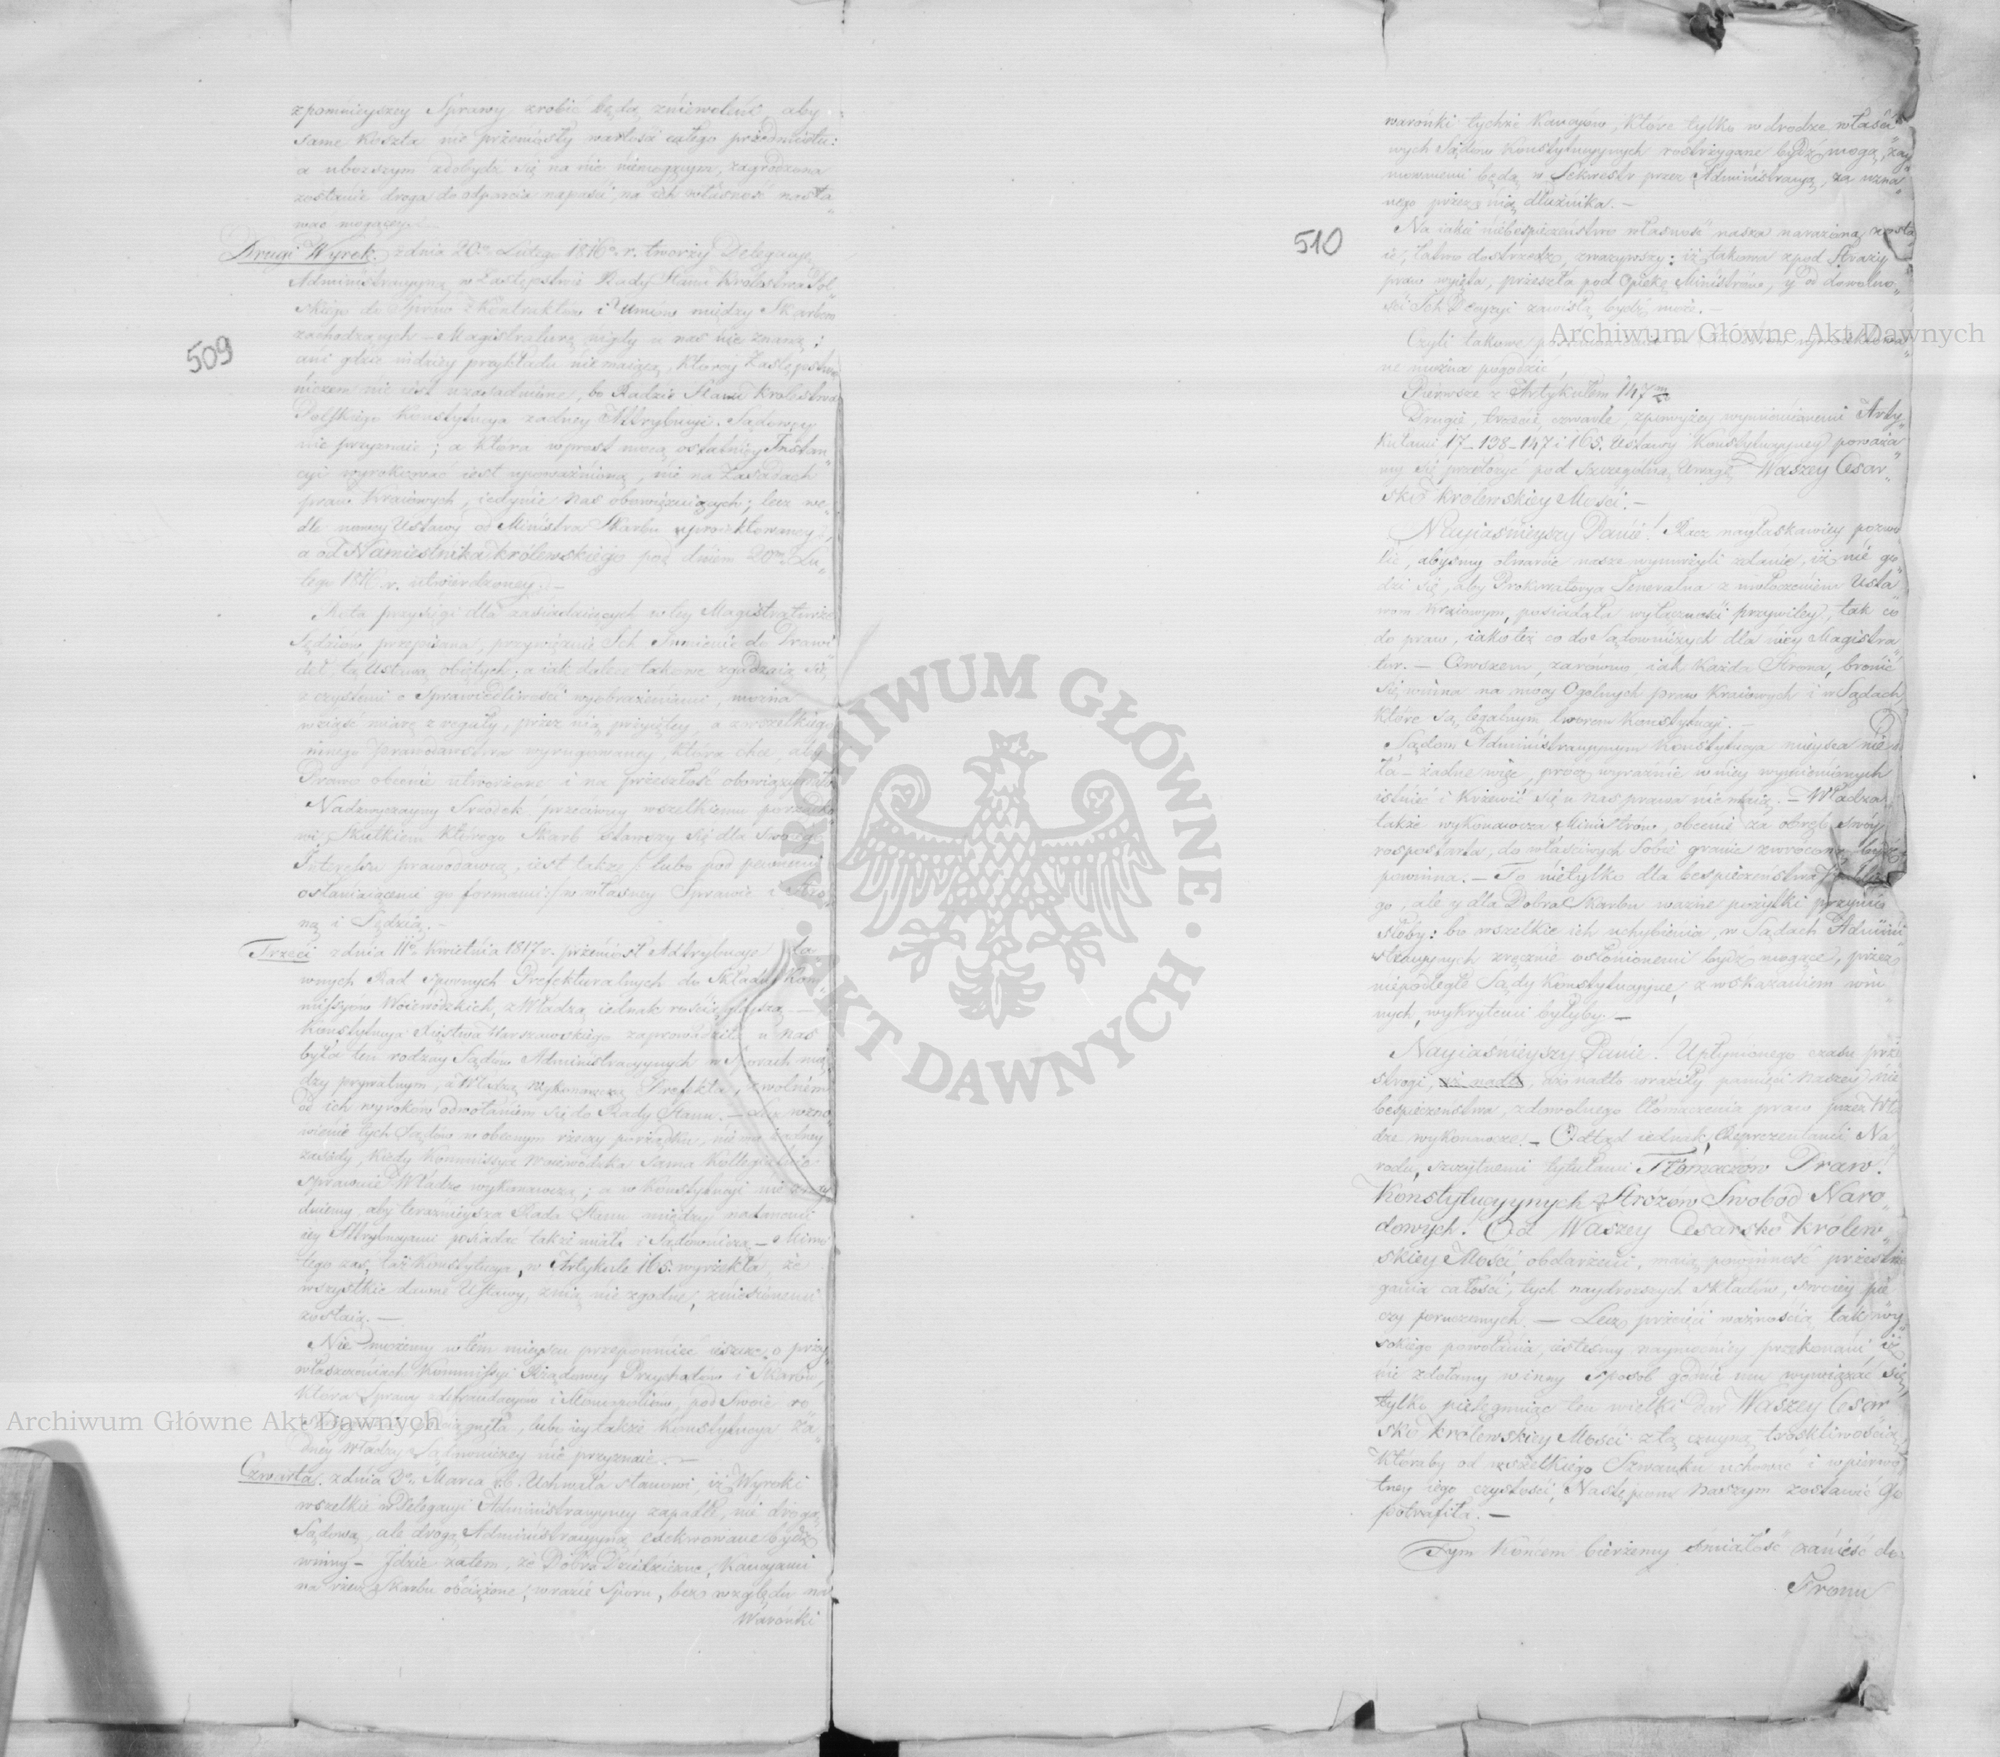 z pomnieyszey Sprawy zrobić będą zniewoleni, aby
same Koszta nie przeniosły wartość całego przedmiotu:
a uboższym zdobydź się na nie niemogącym, zagrodzona
zostanie droga do odparcia napaści, na ich własność nasta„
wać mogącey.
Drugi Wyrok. z dnia 20go Lutego 1816o r. tworzy Delegacyę
Administracyyną w Zastępstwie Rady Stanu Królestwa Pol„
skiego do Spraw z Kontraktów i Umów między Skarbem
zachodzących – Magistraturę nigdy u nas nie znaną;
ani gdzie indziey przykładu nie maiącą, którey Zastępstwo
niczem nie iest uzasadnione, bo Radzie Stanu Królestwa
Polskiego Konstytucya żadney Attrybucyi Sądowey
nie przyznaie; a która wprost mocą ostatniey Instan„
cyi wyrokować iest upoważnioną, nie na Zasadach
praw kraiowych, iedynie nas obowiązuiących; lecz we„
dle nowey Ustawy od Ministra Skarbu uproiektowaney,
a od Namiestnika królewskiego pod dniem 20m Lu„
tego 1816. r. utwierdzoney. –
509
Rota przysięgi dla zasiadaiących w tey Magistraturze
Sędziów, przepisana, przywiązuie Ich Sumienie do Prawi„
deł, tą Ustawą obiętych; a iak dalece takowe zgadzaią się
z czystemi o Sprawiedliwości wyobrażeniami, można
wziąść miarę z reguły, przez nią przyiętey, a z wszelkiego
innego prawodawstwa wyrugowaney, która chce, aby
Prawo obecnie utworzone i na przeszłość obowiązywało
Nadzwyczayny Srzodek przeciwny wszelkiemu porządko„
wi, Skutkiem którego Skarb stawszy się dla Swoiego
Interesu prawodawcą, iest także /: lubo pod pewnemi
osłaniaiącemi go formami:/ w własney Sprawie i Stro„
ną i Sędzią. –
Trzeci z dnia 11go Kwietnia 1817 r. przeniósł Attrybucye da„
wnych Rad Spornych Prefekturalnych do Składu Kom„
missyów Woiewódzkich, z Władzą iednak rościągleyszą –
Konstytucya Xięstwa Warszawskiego zaprowadziła u nas
była ten rodzay Sądów Administracyynych w Sporach mię„
dzy prywatnym, a Władzą wykonawczą Prefekta, z wolnem
od ich wyroków odwołaniem się do Rady Stanu. – Lecz wzno„
wienie tych Sądów w obecnym rzeczy porządku, nie ma żadney
zasady, kiedy Kommissya Woiewódzka sama Kollegialnie
sprawuie Władzę wykonawczą; a w Konstytucyi nie znay„
duiemy, aby teraznieysza Rada Stanu między nadanemi
iey Attrybucyami posiadać także miała i Sądowniczą. – Mimo
tego zaś, taż Konstytucya, w Artykule 165. wyrzekła, że
wszystkie dawne Ustawy, z nią nie zgodne, zniesionemi
zostaią. –
Nie możemy w tém mieyscu przepomnieć ieszcze o przy„
właszczeniach Kommissyi Rządowey Przychodów i Skarbu,
która Sprawy defraudacyów i Monopoliów, pod Swoie ro„
lubo iey także Konstytucya ża„
dney Władzy Sądowniczey nie przyznaie. –
Czwarta. z dnia 3o Marca r.b. Uchwała stanowi, iż Wyroki
wszelkie w Delegacyi Administracyyney zapadłe, nie drogą
Sądową, ale drogą Administracyyną exekwowane bydź
winny – Idzie zatem, że Dobra Dziedziczne, Kaucyami
na rzecz Skarbu obciążone, w razie Sporu, bez względu na
Warónki
warónki tychże Kaucyów, które tylko w drodze właści„
wych Sądów Konstytucyynych rostrzygane bydź mogą, zay„
mowanemi będą w Sekwestr przez Administracyą, za uzna„
nego przez nią dłużnika. –
510
Na iakie niebespieczeństwo własność nasza narażoną zosta„
ie, łatwo dostrzedz, zważywszy: iż takowa z pod Straży
praw wyięta, przeszła pod Opiekę Ministrów, y od dowolno„
ści Ich Decyzyi zawisłą bydź może. –
Czyli takowe
ne można pogodzić
Pierwsze z Artykułem 147m
Drugie, trzecie, czwarte, z powyżey wymienionemi Arty„
kułami 17 – 138 – 147 i 165. Ustawy Konstytucyyney poważa„
my się przełożyć pod szczególną Uwagę Waszey Cesar„
sko królewskiey Mości. –
Nayiaśnieyszy Panie! Racz nayłaskawiey pozwo„
lić, abyśmy otwarcie nasze wynurzyli zdanie, iż nie go„
dzi się, aby Prokuratorya Jeneralna z uwłóczeniem Usta„
wom kraiowym, posiadała wyłączności przywiley, tak co
do praw, iako też co do Sądowniczych dla niey Magistra„
tur. – Owszem, zarówno, iak każda Strona, bronić
się winna na mocy Ogólnych praw kraiowych i w Sądach,
które są legalnym tworem Konstytucyi. –
Sądom Administracyynym Konstytucya mieysca nie da„
ła – żadne więc, prócz wyraźnie w niey wymienionych
istnieć i krzewić się u nas prawa nie maią. – Władza
także wykonawcza Ministrów, obecnie za obręb swóy
rospostarta, do właściwych Sobie granic zwrócona bydź
powinna. – To nietylko dla bespieczeństwa
go, ale y dla Dobra Skarbu ważne pożytki przynio„
słoby: bo wszelkie ich uchybienia, w Sądach Admini„
stracyynych zręcznie osłonionemi bydź mogące, przez
niepodległe Sądy Konstytucyyne, z wskazaniem win„
nych, wykrytemi byłyby. –
Nayiaśnieyszy Panie! Upłynionego czasu prze„
strogi, aż nadto, aż nadto wraziły pamięci naszey nie„
bespieczeństwa, z dowolnego tłómaczenia praw przez Wła„
dze wykonawcze. – Odtąd iednak, Reprezentanci Na„
rodu, szczytnemi tytułami Tłómaczów Praw
Konstytucyynych Stróżów Swobód Naro„
dowych. Od Waszey Cesarsko Królew„
skiey Mości, obdarzeni, maią powinność przestrze„
gania całości, tych naydroższych składów, swoiey pie„
czy poruczonych. – Lecz przeięci ważnością tak wy„
sokiego powołania, iesteśmy naymocniey przekonani, iż
nie zdołamy w inny sposób godnie mu wywiązać się,
tylko pielęgnuiąc ten wielki Dar Waszey Cesar„
sko królewskiey Mości z tą czuyną troskliwością,
któraby od wszelkiego Szwanku uchować i w pierwo„
tney iego czystości, Następcom Naszym zostawić Go
potrafiła. –
Tym Końcem bierzemy śmiałość zanieść do
Tronu
Archiwum Główne Akt Dawnych
Archiwum Główne Akt Dawnych
ARCHIWUM GŁÓWNE
AKT DAWNYCH